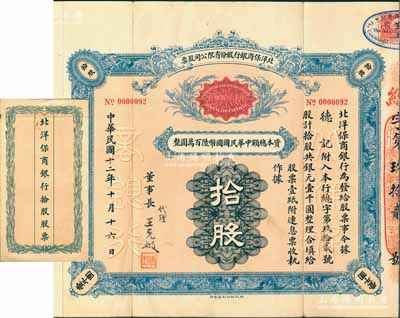 票股司公限有份股行銀商保洋北
No 0000092
No 0000092
資本總額中華民國國幣陸百萬圓整
北洋保商銀行為發給股票事今據
德記附入本行總字第玖拾貳號
股計拾股共銀元壹千圓整理合填給
股票壹紙附連息票收執
作據
拾股
董事長
代理
王克敏
中華民國十二年十月十六日
北洋保商銀行拾股股票